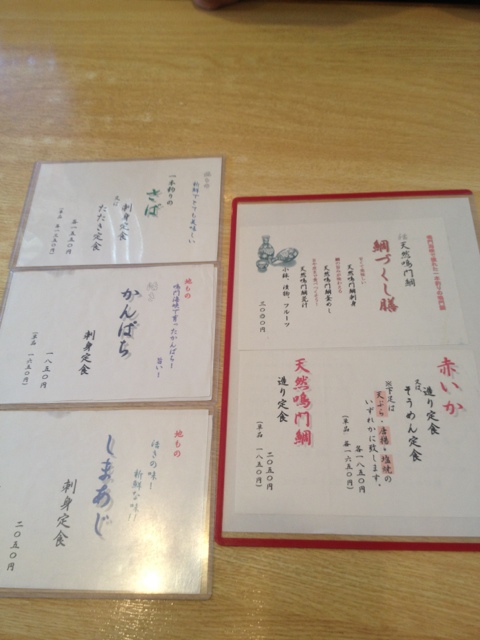 地もの
新鮮でとても美味しい
一本釣りの
さば
刺身定食
又は
たたき定食
各一五五〇円
地もの
鳴門海峡で育ったかんぱち!
旨い!
かんぱち
刺身定食
一八五〇円
(単品 一六五〇円)
地もの
泣きの味!
新鮮な味!!
しまあじ
刺身定食
二〇五〇円
天然鳴門鯛
鯛づくし膳
天然鳴門鯛刺身
天然鳴門鯛釜めし
天然鳴門鯛荒汁
小鉢、漬物、フルーツ
三〇〇〇円
赤いか
造り定食
又は
そうめん定食
※下足は
天ぷら・唐揚・塩焼の
いずれかに致します。
各一八五〇円
(単品 各一六五〇円)
天然鳴門鯛
造り定食
二〇五〇円
(単品 一八五〇円)